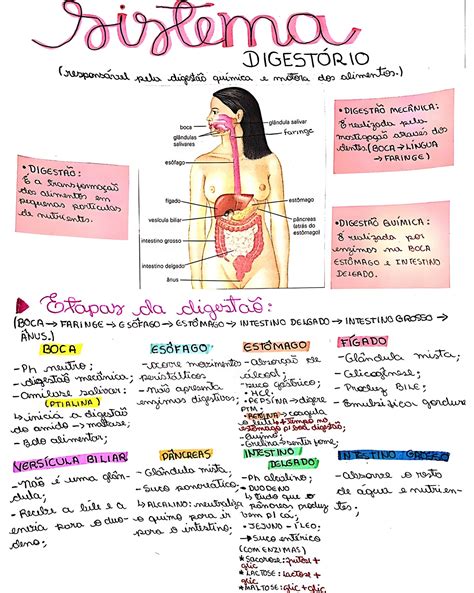 Sistema
DIGESTÓRIO
(responsável pela digestão química e motora dos alimentos.)
• DIGESTÃO:
É a transformação
dos alimentos em
pequenas partículas
de nutrientes.
boca
glândulas
salivares
esôfago
fígado
vesícula biliar
intestino grosso
intestino delgado
ânus
glândula salivar
faringe
estômago
pâncreas
(atrás do
estômago)
• DIGESTÃO MECÂNICA:
É realizada pela
mastigação através dos
dentes. (BOCA → LÍNGUA
→ FARINGE)
• DIGESTÃO QUÍMICA:
É realizada por
enzimas na BOCA
ESTÔMAGO E INTESTINO
DELGADO.
Etapas da digestão:
(BOCA → FARINGE → ESÔFAGO → ESTÔMAGO → INTESTINO DELGADO → INTESTINO GROSSO →
ÂNUS.)
BOCA
- Ph neutro;
- digestão mecânica;
- Amilase salivar:
(PTIALINA)
↳ inicia a digestão
do amido → maltose;
- Bolo alimentar;
ESÔFAGO
- ocorre movimento
peristálticos
- não apresenta
enzimas digestivas;
ESTÔMAGO
- Absorção de
álcool;
- suco gástrico;
• HCL;
• PEPSINA → digere
PTN.
• RENINA → coagula
o leite → + tempo no
estômago p/ sua digestão;
- Quimo;
- Grelina → sentir fome;
FÍGADO
- Glândula mista;
- Glicogênese;
- Produz BILE;
- Emulsificar gordura
VERSÍCULA BILIAR
- Não é uma glân-
dula;
- Recebe a bile e a
envia para o duo-
deno;
PÂNCREAS
- Glândula mista;
- Suco pancreático;
↳ ALCALINO: neutraliza
o quimo para ir
para o intestino;
INTESTINO
DELGADO
- Ph alcalino;
- DUODENO
↳ tudo que o
pâncreas produz
vem p/ cá;
- JEJUNO - ÍLEO;
→ suco entérico
(COM ENZIMAS)
* Sacarose: frutose +
glic
* LACTOSE: lactose +
glic
* MALTOSE: glic + glic
INTESTINO GROSSO
- Absorve o resto
de água e nutrien-
tes;